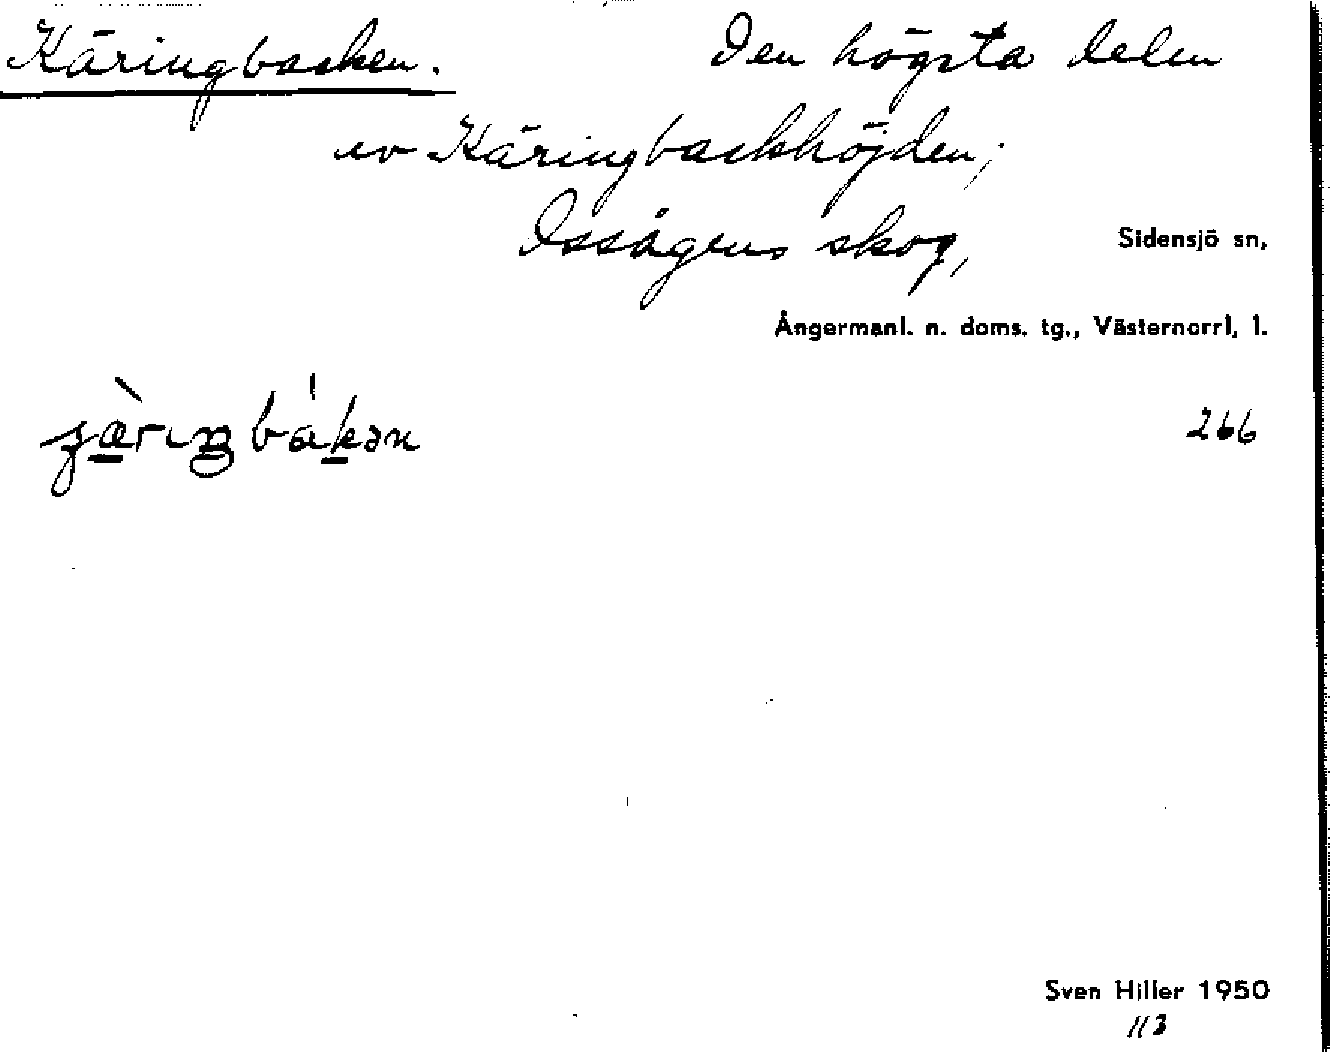 Käringbacken. Den högsta delen
av Käringbackhöjden;
skog, Sidensjö sn,
Ångermanl. n. doms. tg., Västernorrl. l.
266
Sven Hiller 1950
113